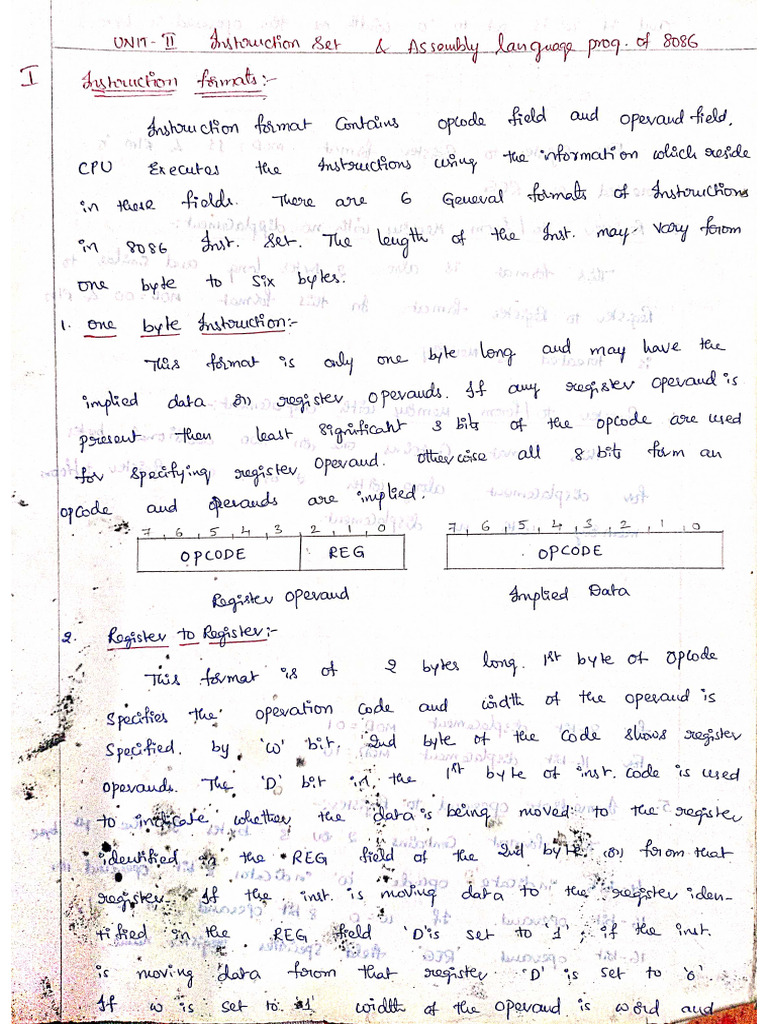 UNIT-II Instruction Set & Assembly language prog. of 8086
I Instruction formats:-
Instruction format contains opcode field and operand field.
CPU executes the Instructions using the information which reside
in these fields. There are 6 General formats of Instructions
in 8086 Inst. Set. The length of the Inst. may vary from
one byte to six bytes.
1. one byte Instruction:-
This format is only one byte long and may have the
implied data (or) register operands. If any register operand is
present then least significant 3 bits of the opcode are used
for specifying register operand. otherwise all 8 bits form an
opcode and operands are implied.
7 6 5 4 3 2 1 0 7 6 5 4 3 2 1 0
OPCODE REG OPCODE
Register Operand Implied Data
2. Register to Register:-
This format is of 2 bytes long. 1st byte of opcode
Specifies the operation code and width of the operand is
Specified by 'w' bit. 2nd byte of the code shows register
operands. The 'D' bit in the 1st byte of inst. code is used
to indicate whether the data is being moved to the register
identified in the REG field of the 2nd byte (or) from that
register. If the inst. is moving data to the register iden-
tified in the REG field 'D' is set to '1', if the inst.
is moving data from that register 'D' is set to '0'
If w is set to '1' width of the operand is word and